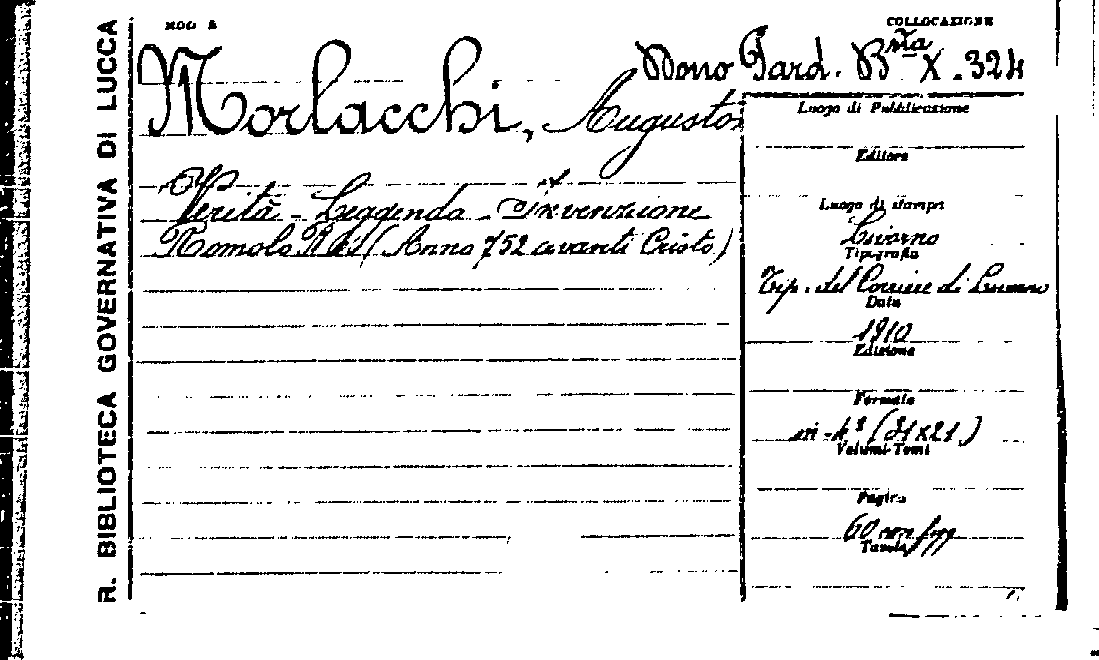 R. BIBLIOTECA GOVERNATIVA DI LUCCA
MOD
COLLOCAZIONE
Dono Pard. Bsta X.324
Morlacchi, Augusto
Verità - Leggenda - Invenzione
Romolo (Anno 752 avanti Cristo)
Luogo di Pubblicazione
Editore
Luogo di stampa
Livorno
Tipografia
Tip. del Corriere di Livorno
Data
1910
Edizione
Formato
in-4º (31x21)
Volumi-Tomi
Pagine
60
Tavole